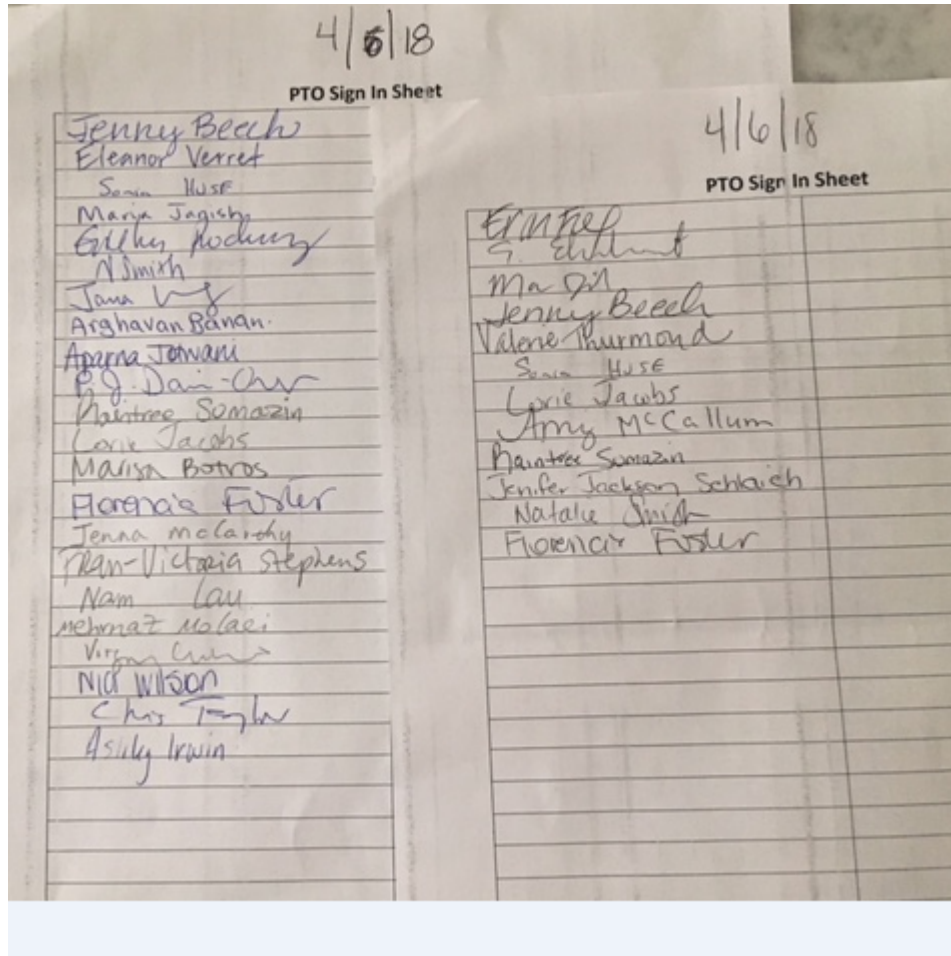 4/5/18
PTO Sign In Sheet
Jenny Beech
Eleanor Verret
Sonia Huse
Maria
N Smith
Jana
Arghavan Banan.
Aparna Jotwani
P.J. Dain-Chw
Raintree Somazin
Lorie Jacobs
Marisa Botros
Florencia Fuster
Jenna McCarthy
Fran-Victoria Stephens
Nam Lau
Mehrnaz Molaei
Nick Wilson
Chris Taylor
Ashley Irwin
4/6/18
PTO Sign In Sheet
Jenny Beech
Valerie Thurmond
Sonia Huse
Lorie Jacobs
Amy McCallum
Raintree Somazin
Jenifer Jackson Schlaich
Natalie Smith
Florencia Fuster